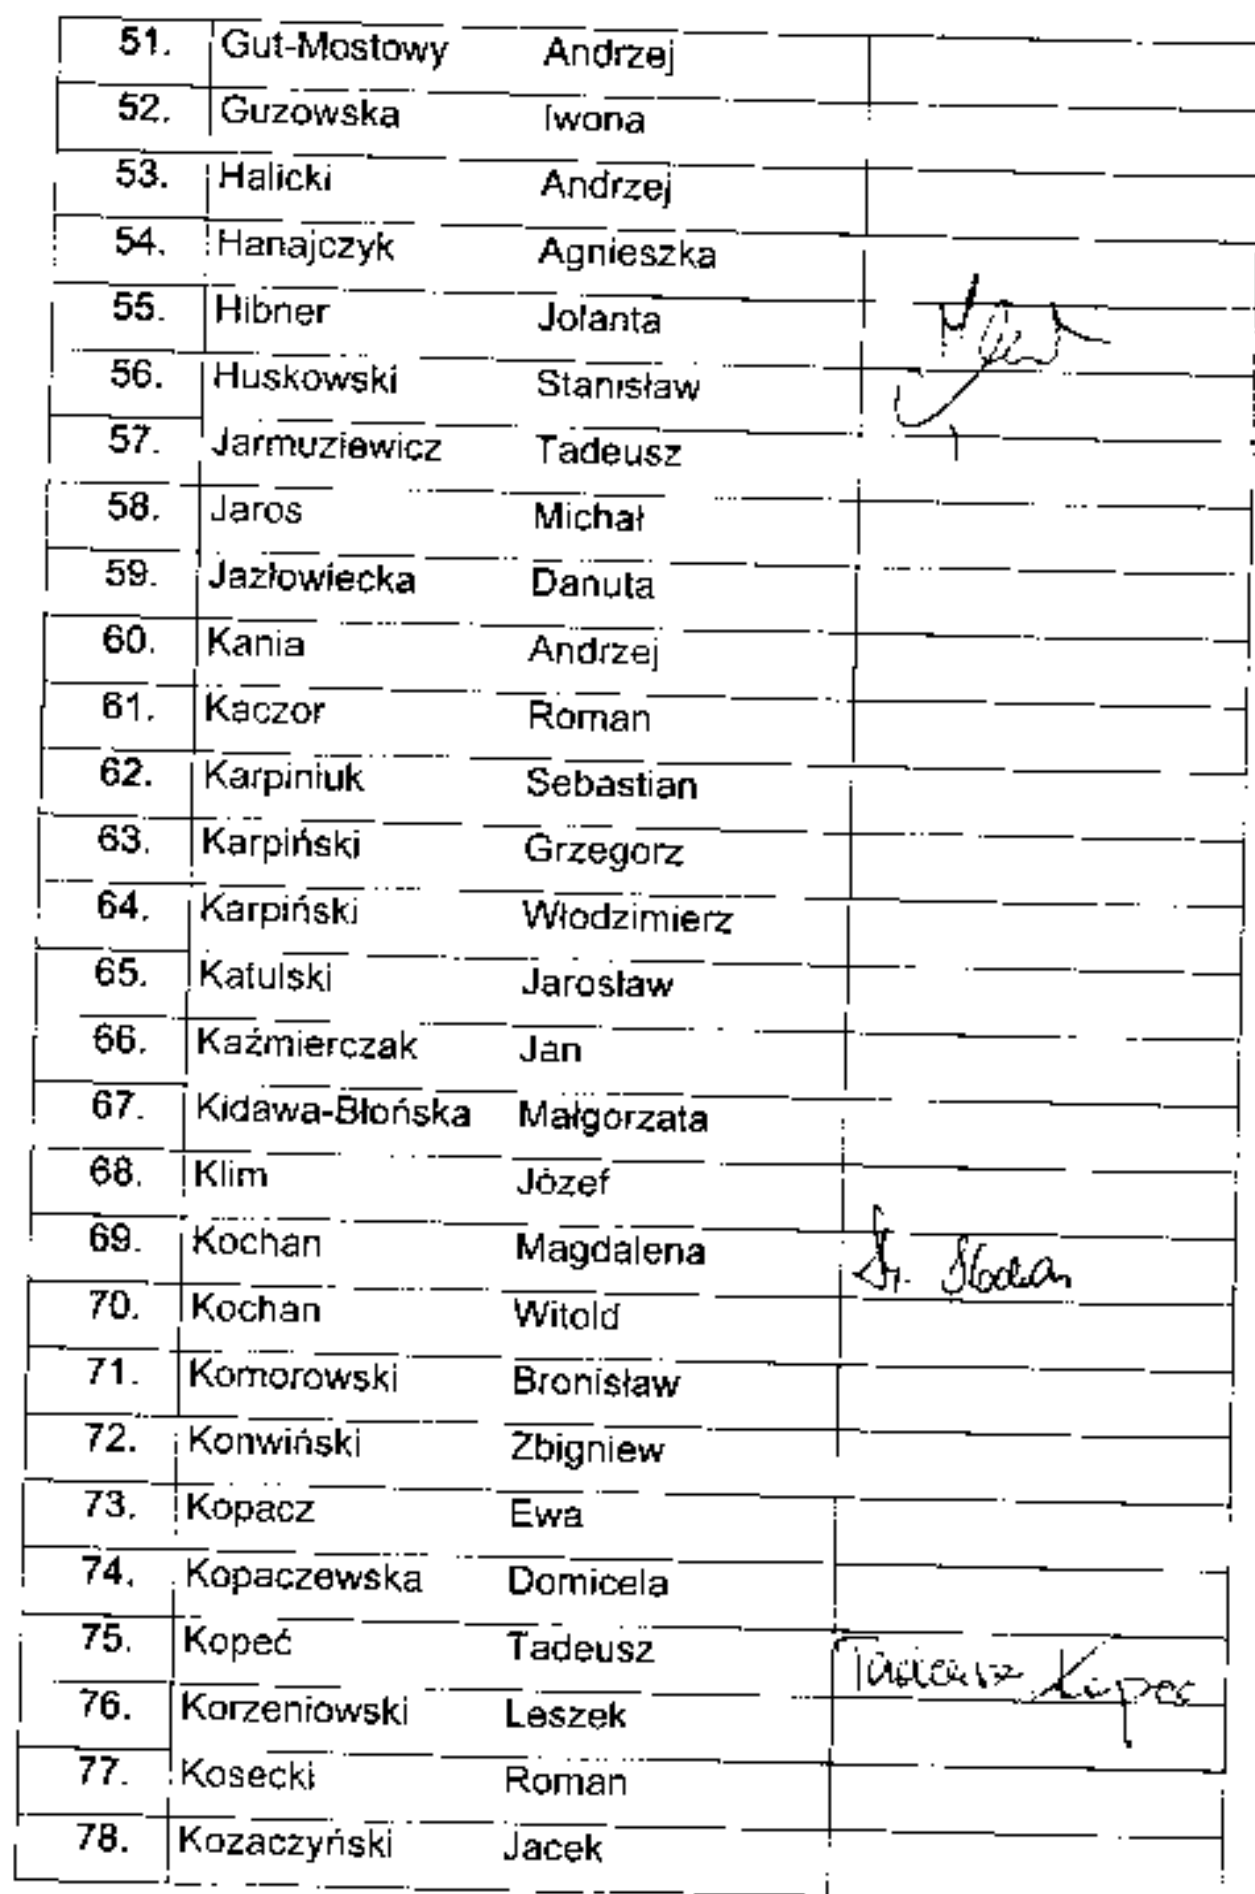 51. Gut-Mostowy Andrzej
52. Guzowska Iwona
53. Halicki Andrzej
54. Hanajczyk Agnieszka
55. Hibner Jolanta
56. Huskowski Stanisław
57. Jarmuziewicz Tadeusz
58. Jaros Michał
59. Jazłowiecka Danuta
60. Kania Andrzej
61. Kaczor Roman
62. Karpiniuk Sebastian
63. Karpiński Grzegorz
64. Karpiński Włodzimierz
65. Katulski Jarosław
66. Kaźmierczak Jan
67. Kidawa-Błońska Małgorzata
68. Klim Józef
69. Kochan Magdalena
70. Kochan Witold
71. Komorowski Bronisław
72. Konwiński Zbigniew
73. Kopacz Ewa
74. Kopaczewska Domicela
75. Kopeć Tadeusz Tadeusz Kopeć
76. Korzeniowski Leszek
77. Kosecki Roman
78. Kozaczyński Jacek